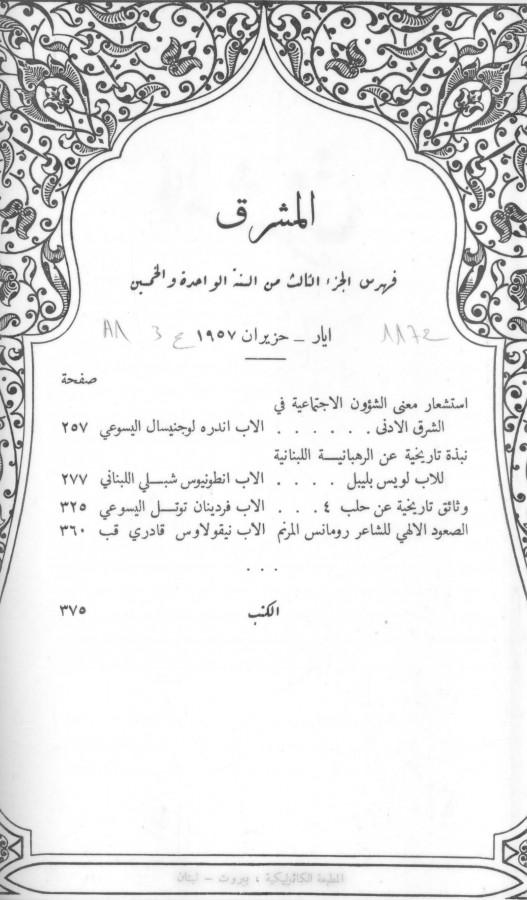 المشرق
فهرس الجزء الثالث من السنة الواحدة والخمسين
ايار – حزيران ١٩٥٧
1172
3 ع
صفحة
استشعار معنى الشؤون الاجتماعية في
الشرق الادنى . . . . . . الاب اندره لوجنيسال اليسوعي ٢٥٧
نبذة تاريخية عن الرهبانيــة اللبنانية
للاب لويس بليبل . . . . الاب انطونيوس شبــلي اللبناني ٢٧٧
وثائق تاريخية عن حلب ٤ . . . الاب فردينان توتــل اليسوعي ٣٢٥
الصعود الالهي للشاعر رومانس المرنم الاب نيقولاوس قادري قب ٣٦٠
. . .
الكتب ٣٧٥
المطبعة الكاثوليكية ، بيروت – لبنان